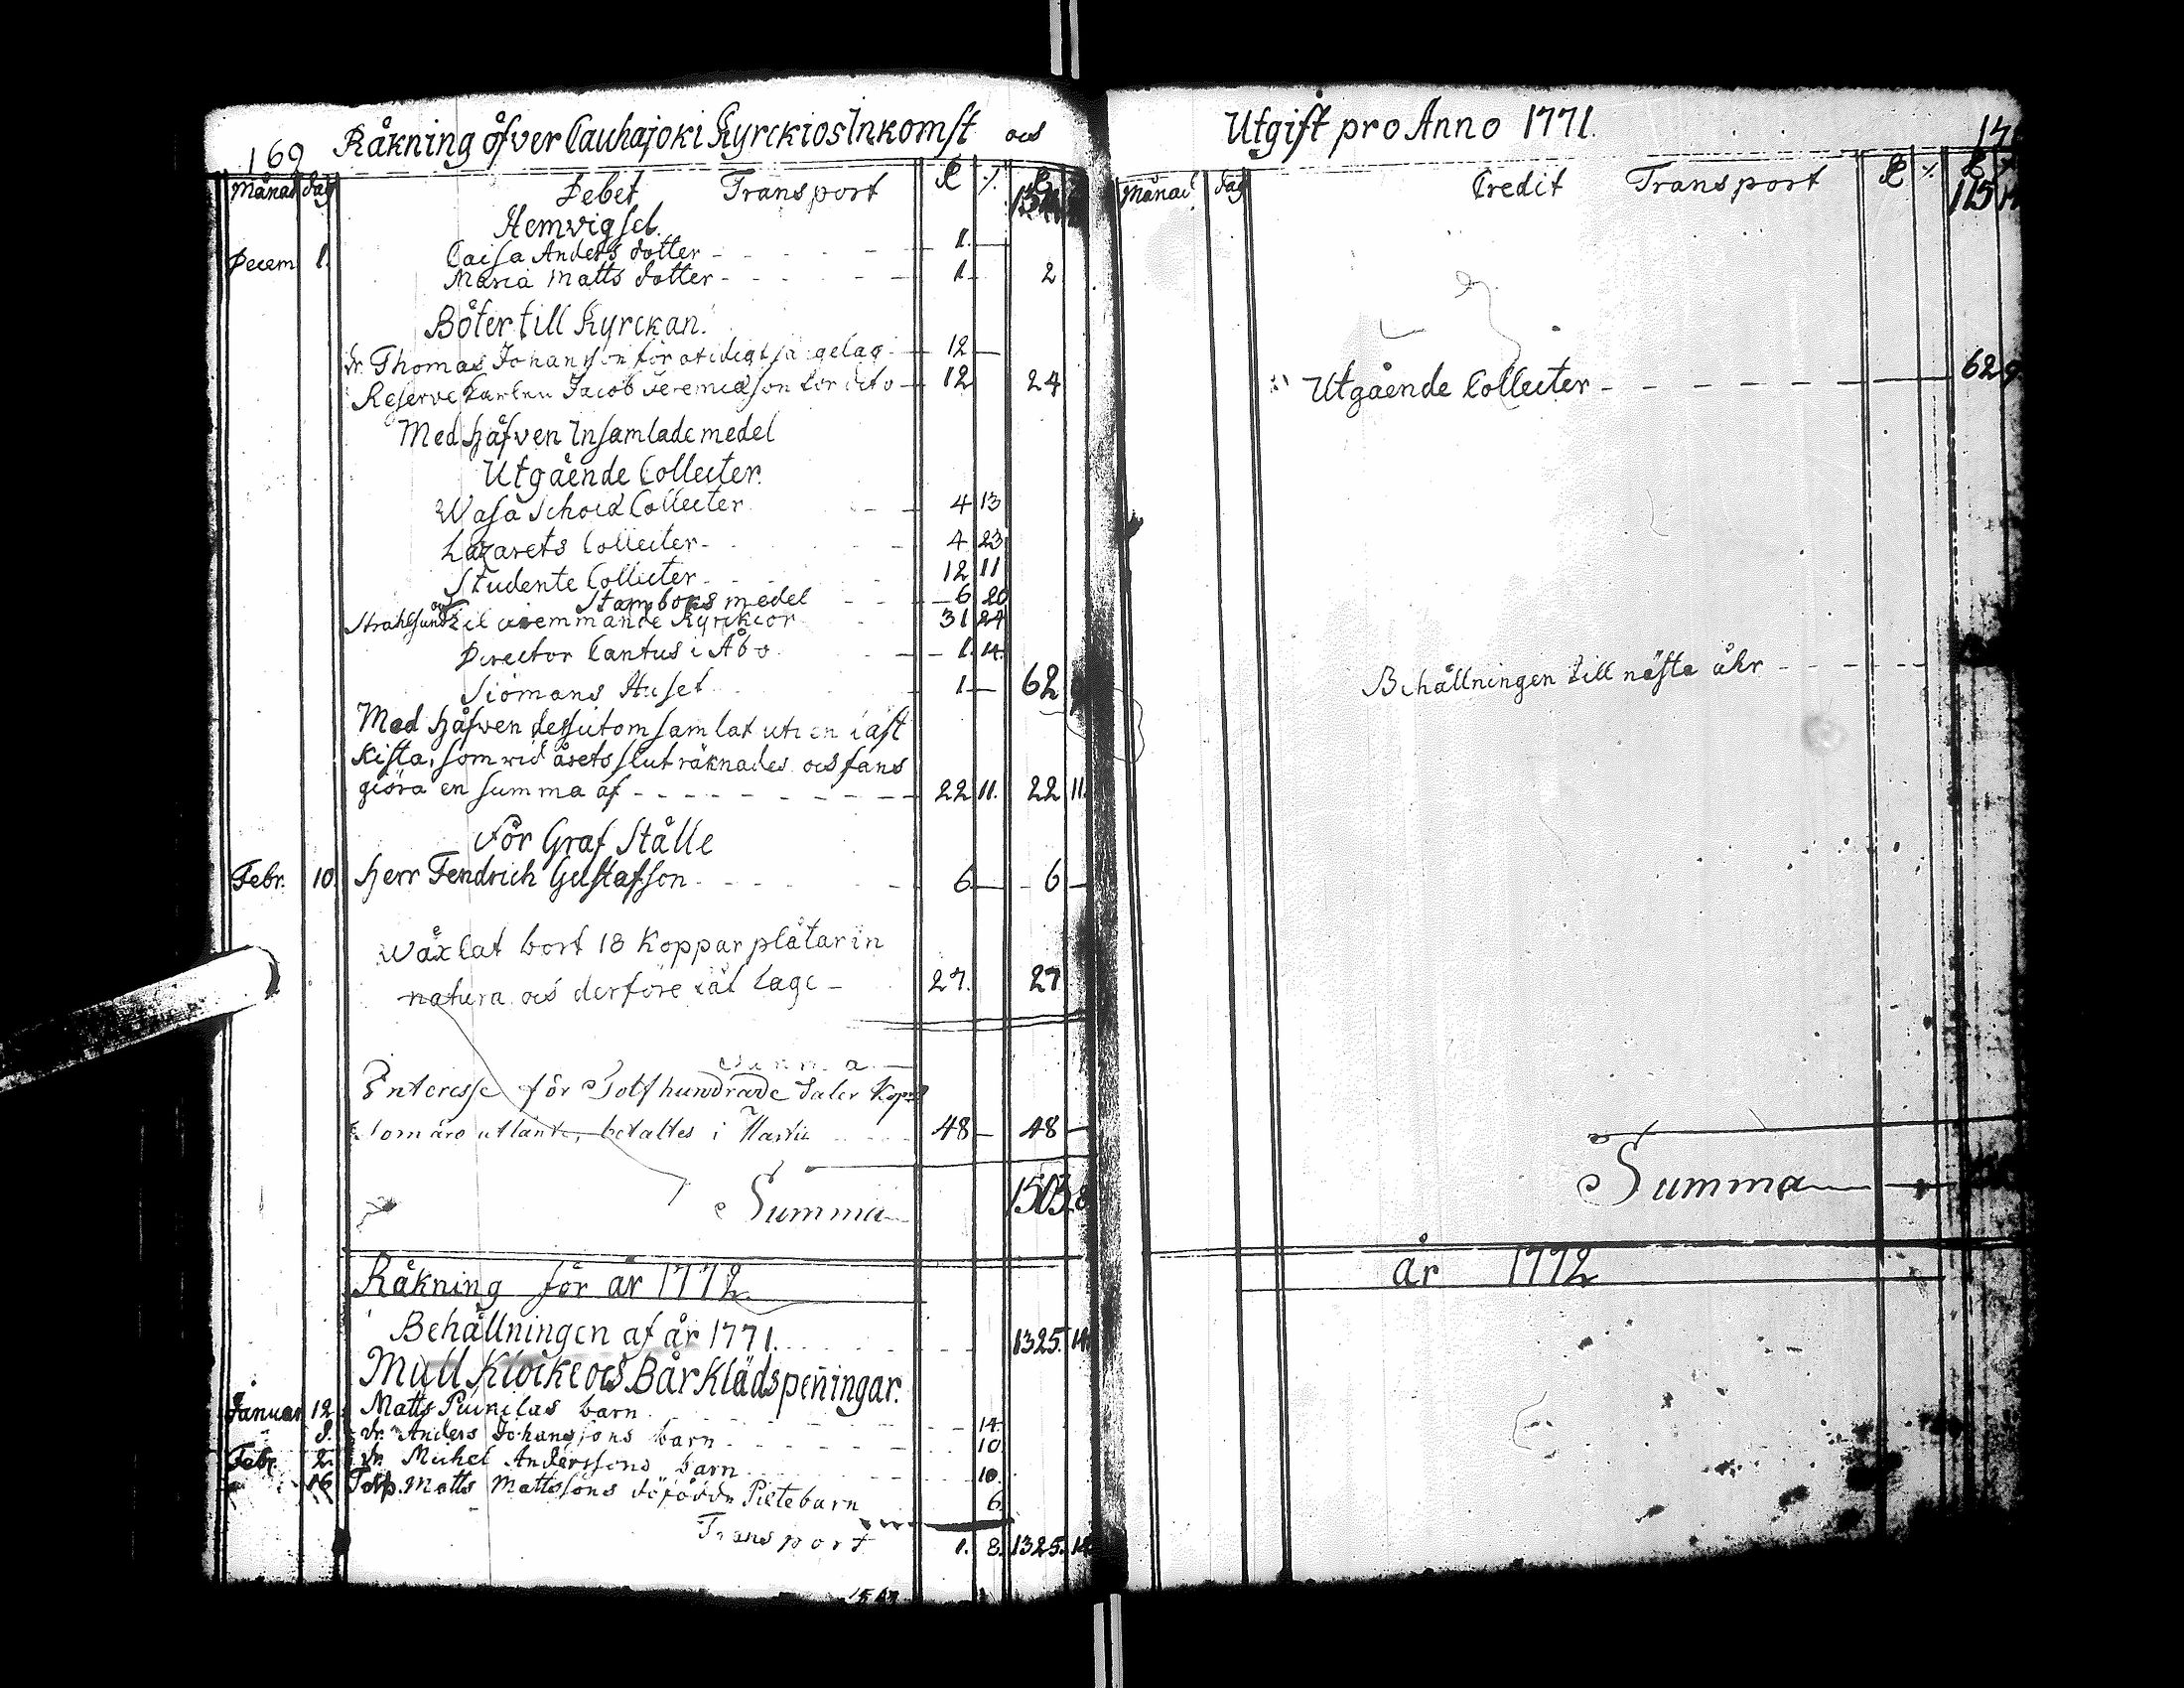 169 Råkning öfver Cauhajoki Kyrckios Inkomst och
Månad dag Debet Transport
Hemvigsel.
Decem 1. Caisa Anders dotter - - - 1. —
Maria Matts dotter - - - 1 — 2
Böter till Kyrckan.
dr. Thomas Johansson för 12 —
Reserve Karlen Jacob Jeremiæson för dito 12 24
Med håfven Insamlade medel
Utgående Collecter.
Wasa Schola Collecter 4 13
Lazarets Collecter - 4 23
Studente Collecter - 12 11
Stamboks medel 6 20
Strahlsund Kyrckior 31 24
Director Cantus i Åbo. 1. 14.
Siömans Huset 1 — 62
Med håfven dessutom samlat uti en
Kista, som vid årets slut räknades och fans
giöra en summa af - - - 22 11. 22 11.
För Graf Ställe
Febr. 10. Herr Fendrich Gustafson - - - 6 — 6 —
Wäxlat bort 18 Kopparplåtar in
natura och derföre 27. 27
Interesse för Tolfhundrade daler Kopr
Som äro utlänte, betaltes i 48 — 48 —
Summa 1503 8
Råkning för år 1772.
Behållningen af år 1771. 1325. 14
Mull Klocke och Bårklädspeñingar.
Januar 12. Matts Punilas barn 14.
dr. Anders Johanssons barn 10
Febr. 2. dr. Michel Anderssons barn 10.
16 Torp. Matts Mattssons Piltebarn 6.
Transport 1. 8. 1325. 14
Utgift pro Anno 1771.
Månad dag Credit Transport
115
Utgående Collecter - - - 62 9
Behållningen till nästa åhr - - -
Summa
år 1772